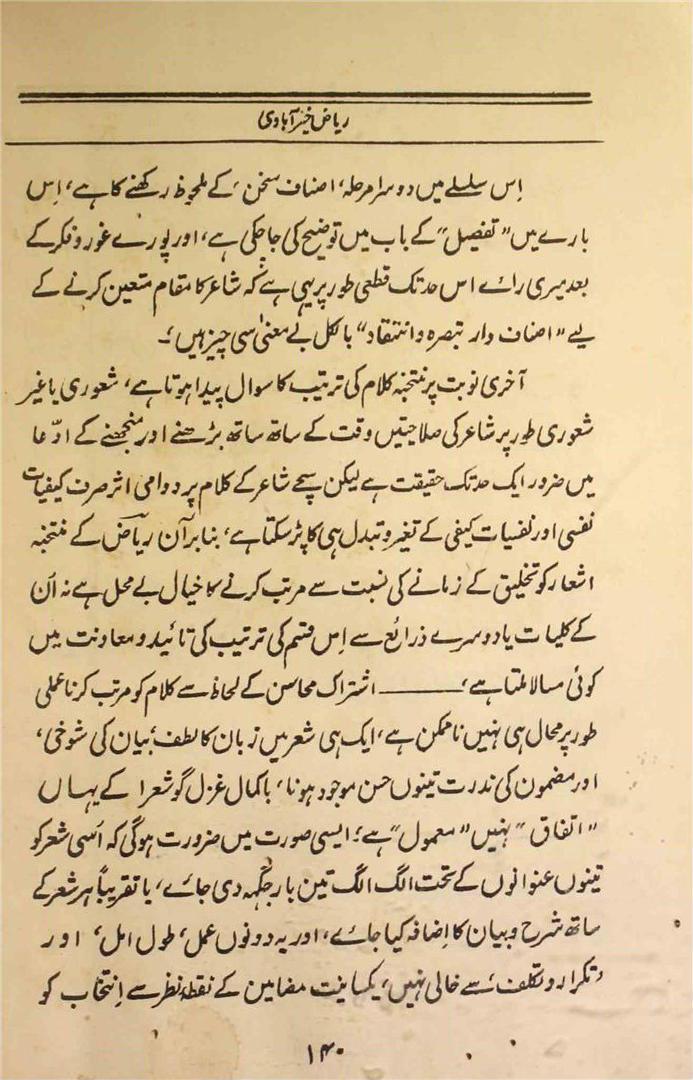 ریاض خیرآبادی
اِس سلسلے میں دوسرا مرحلہ، اصناف سخن، کے ملحوظ رکھنے کا ہے، اِس
بارے میں ”تفصیل“ کے باب میں توضیح کی جاچکی ہے، اور پورے غور و فکر کے
بعد میری رائے اس حد تک قطعی طور پر یہی ہے کہ شاعر کا مقام متعین کرنے کے
لیے ”اصناف وار تبصرہ و انتقاد“ بالکل بے معنیٰ سی چیز ہیں،۔
آخری نوبت پر منتخبہ کلام کی ترتیب کا سوال پیدا ہوتا ہے، شعوری یا غیر
شعوری طور پر شاعر کی صلاحیتیں وقت کے ساتھ ساتھ بڑھنے اور منجھنے کے ادّعا
میں ضرور ایک حد تک حقیقت ہے لیکن سچے شاعر کے کلام پر دوامی اثر صرف کیفیات
نفسی اور نفسیات کیفی کے تغیر و تبدل ہی کا پڑ سکتا ہے، بنا برآن ریاؔض کے منتخبہ
اشعار کو تخلیق کے زمانے کی نسبت سے مرتب کرنے کا خیال بے محل ہے نہ اُن
کے کلیات یا دوسرے ذرائع سے اِس قسم کی ترتیب کی تائید و معاونت میں
کوئی مسالا ملتا ہے، ——— اشتراک محاسن کے لحاظ سے کلام کو مرتب کرنا عملی
طور پر محال ہی نہیں ناممکن ہے، ایک ہی شعر میں زبان کا لطف، بیان کی شوخی،
اور مضمون کی ندرت تینوں حسن موجود ہونا، باکمال غزل گو شعرا کے یہاں
”اتفاق“ نہیں ”معمول“ ہے، ایسی صورت میں ضرورت ہوگی کہ اُسی شعر کو
تینوں عنوانوں کے تحت الگ الگ تین بار جگہ دی جائے، یا تقریباً ہر شعر کے
ساتھ شرح و بیان کا اِضافہ کیا جائے، اور یہ دونوں عمل، طول امل، اور
،تکرار و تکلف، سے خالی نہیں، یکسانیت مضامین کے نقطۂ نظر سے اِنتخاب کو
۱۴۰